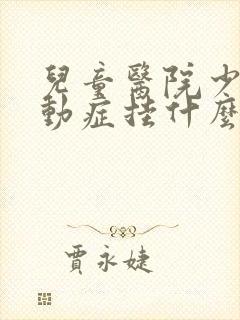 兒童醫院少
動症挂什麼
賈永婕